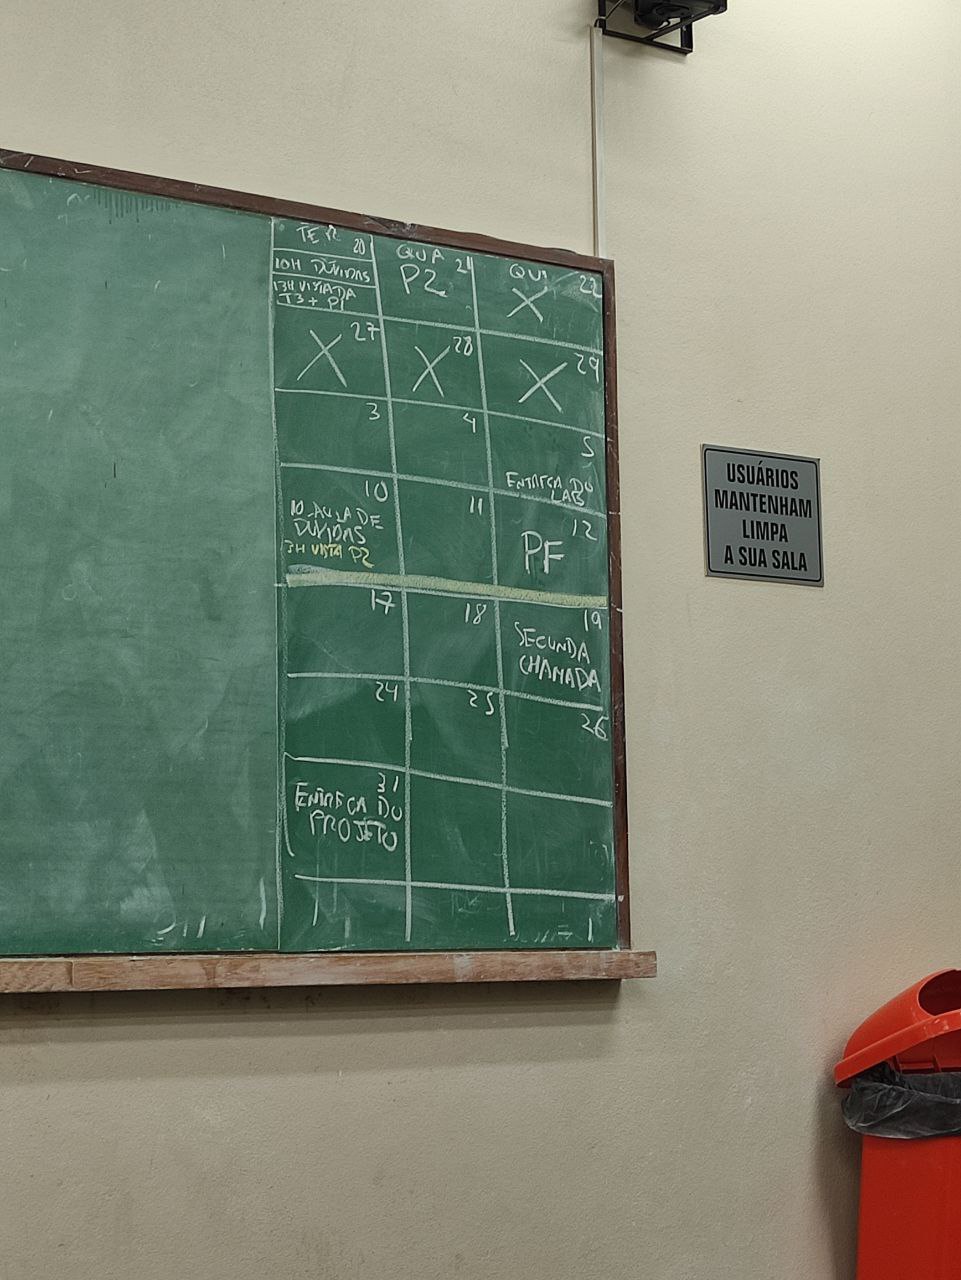 TER 20
10H DÚVIDAS
13H VISTA DA
T3 + P1
QUA 21
P2
QUI 22
X
27
X
28
X
29
X
3
4
5
ENTREGA DO
LAB
10
10 AULA DE
DÚVIDAS
3H VISTA P2
11
12
PF
17
18
19
SEGUNDA
CHAMADA
24
25
26
31
ENTREGA DO
PROJETO
USUÁRIOS
MANTENHAM
LIMPA
A SUA SALA